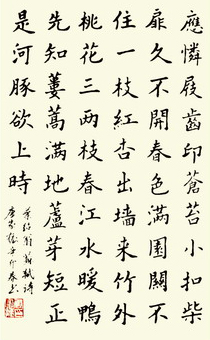 應憐屐齒印蒼苔小扣柴
扉久不開春色滿園關不
住一枝紅杏出墙來竹外
桃花三兩枝春江水暖鴨
先知蔞蒿滿地蘆芽短正
是河豚欲上時
葉紹翁蘇軾詩